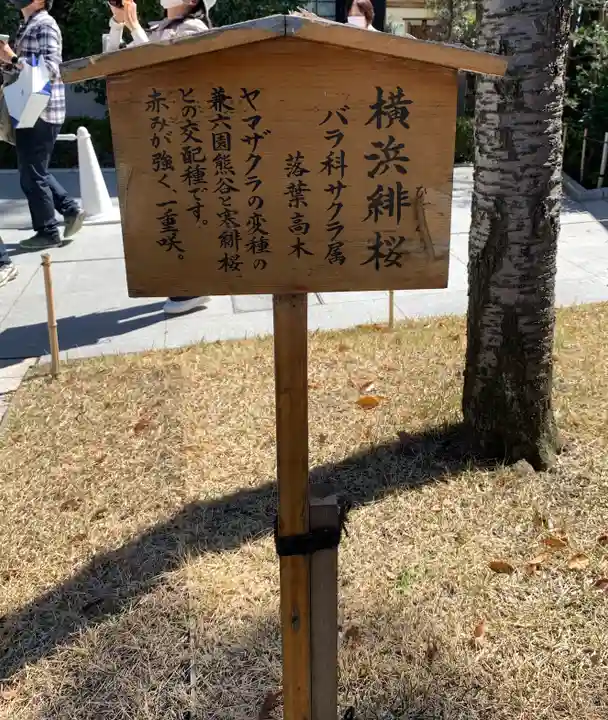 横浜緋桜
ひ
バラ科サクラ属
落葉高木
ヤマザクラの変種の
兼六園熊谷と寒緋桜
との交配種です。
赤みが強く、一重咲。